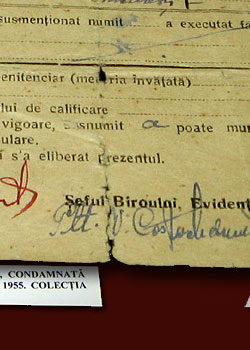 susmenționat numit a executat fa
enitenciar (meseria învățată)
lui de calificare
vigoare, susnumit a poate mun
ulare.
i s'a eliberat prezentul.
Șeful Biroului, Eviden
Plt. V.
, CONDAMNATĂ
1955. COLECȚIA